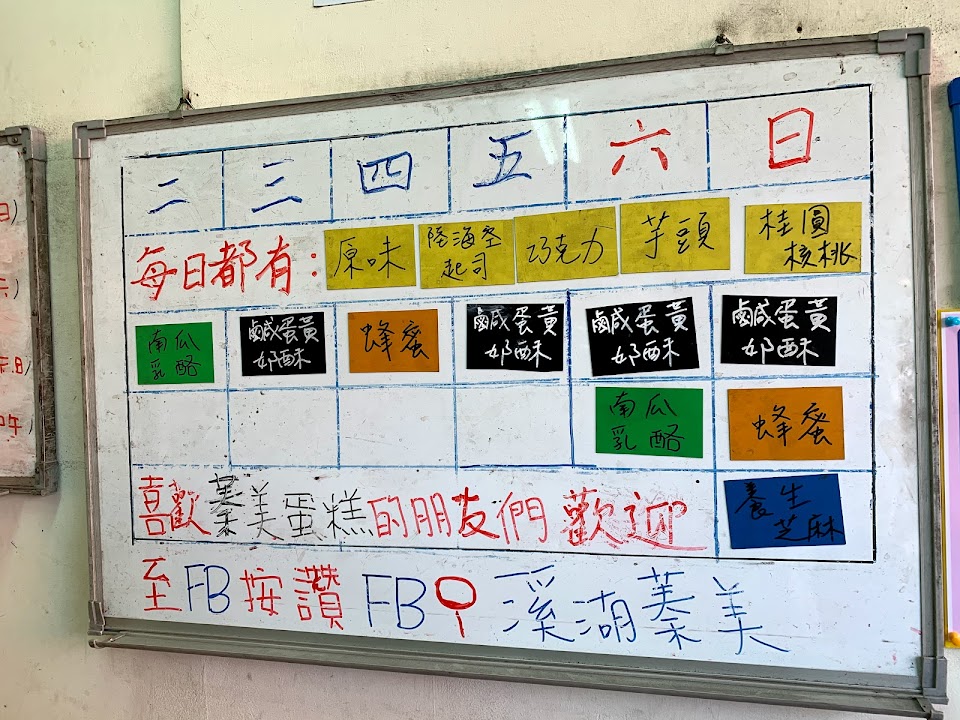 二 三 四 五 六 日
每日都有: 原味 陸海空起司 巧克力 芋頭 桂圓核桃
南瓜乳酪 鹹蛋黃奶酥 蜂蜜 鹹蛋黃奶酥 鹹蛋黃奶酥 鹹蛋黃奶酥
南瓜乳酪 蜂蜜
喜歡蓁美蛋糕的朋友們歡迎 養生芝麻
至FB按讚 FB 溪湖蓁美
日)
六)
日)
午)